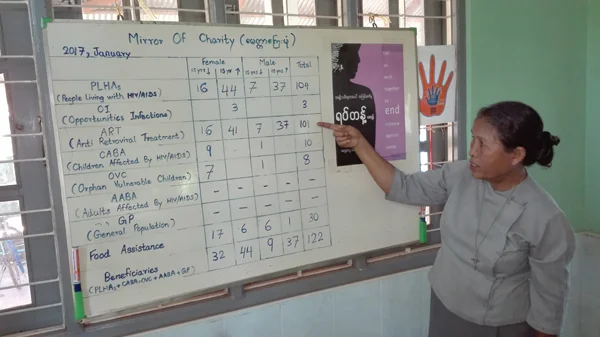 Mirror Of Charity (မေတ္တာကြေးမုံ)
2017, January
Female Male Total
15 yrs ↓ 15 yr ↑ 15 yrs ↓ 15 yrs ↑
PLHAs 16 44 7 37 104
(People living with HIV/AIDS)
OI 3 3
(Opportunities Infections)
ART 16 41 7 37 101
(Anti Retroviral Treatment)
CABA 9 1 10
(Children Affected By HIV/AIDS)
OVC 7 1 8
(Orphan Vulnerable Children)
AABA - - - - -
(Adults Affected By HIV/AIDS)
GP - - - - -
(General Population)
Food Assistance 17 6 6 1 30
Beneficiaries 32 44 9 37 122
(PLHAs+CABA+OVC+AABA+GP)
ရပ်တန့်
end